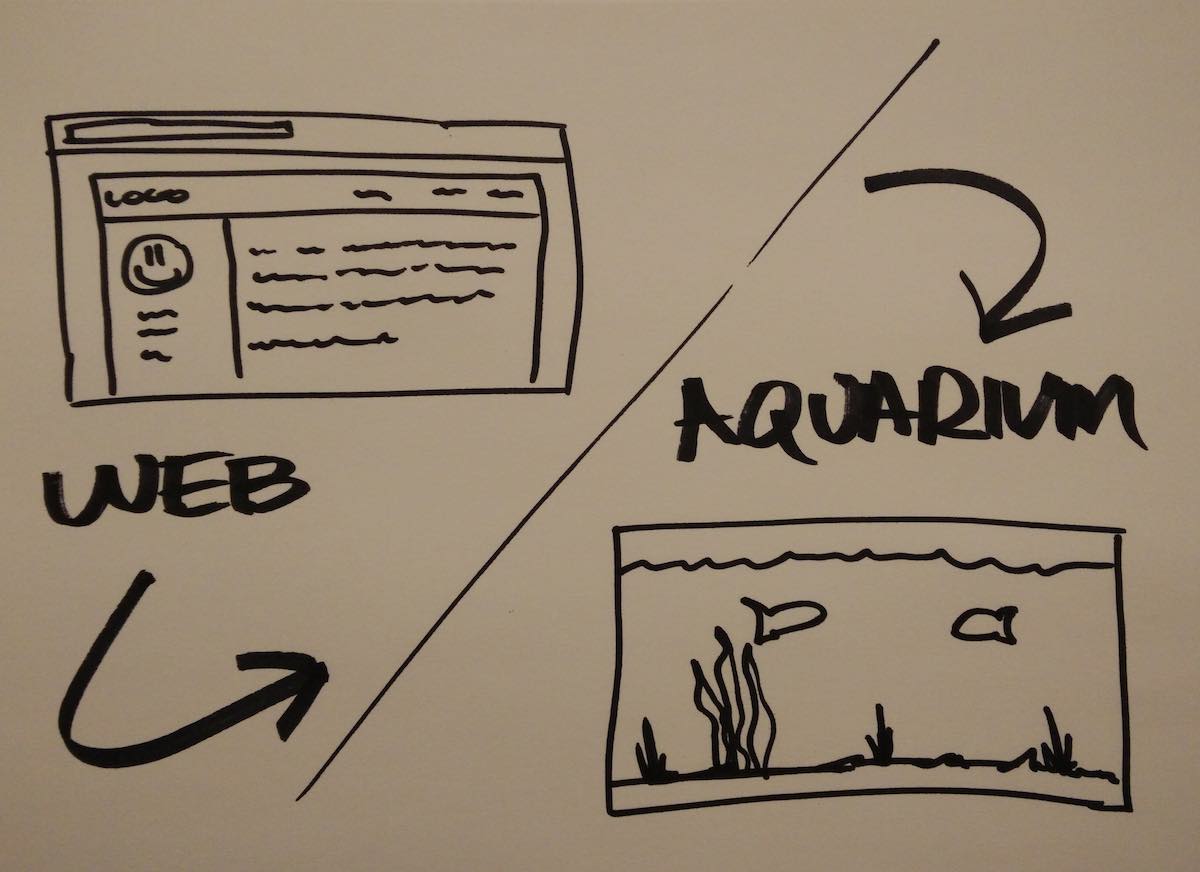 LOGO
WEB
AQUARIUM